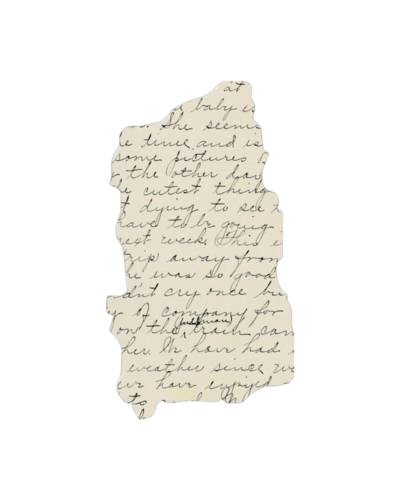 at
baby is
She seems
e time and is
some pictures
the other day
e cutest thing
t dying to see
have to be going
next week. This
trip away from
he was so good
didn't cry once bu
y of company for
on the Pullman train can
her. We have had
weather since we
have enjoyed
to